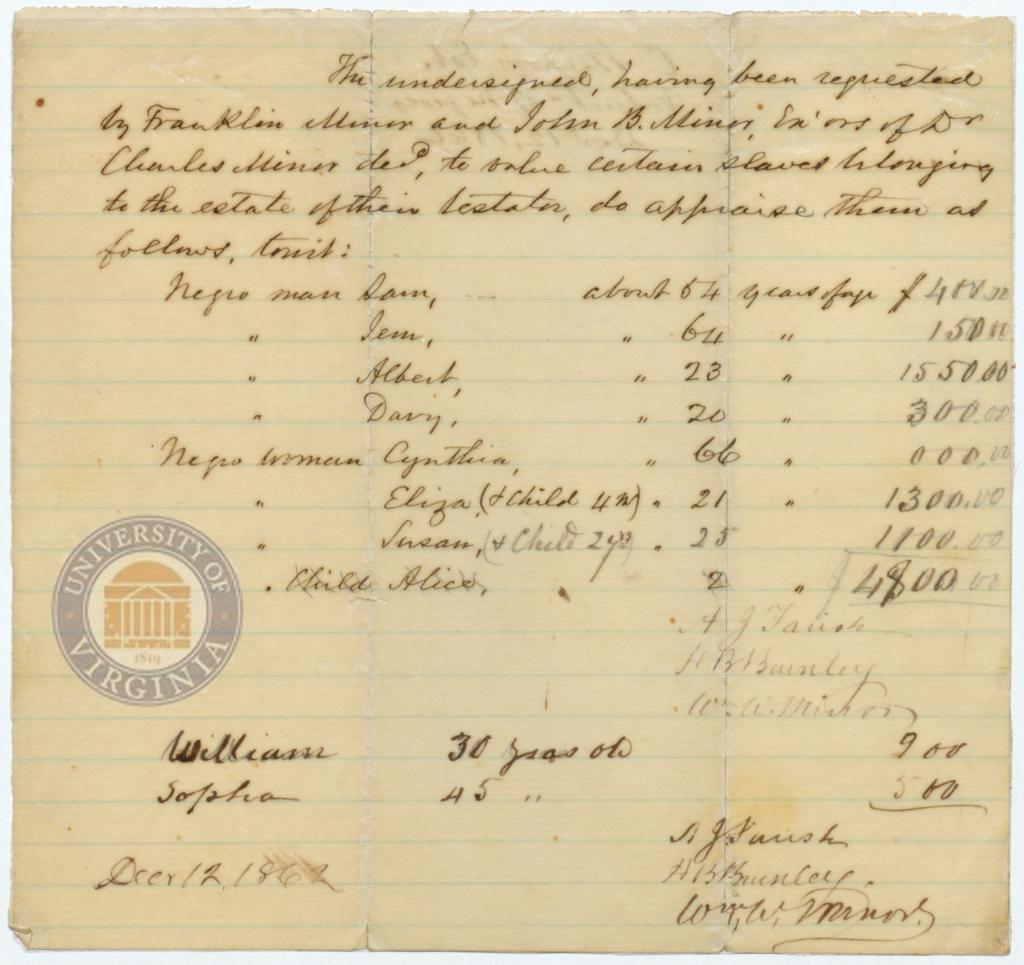 The undersigned, having been requested
by Franklin Minor and John B. Minor, Ex'ors of Dr
Charles Minor decd, to value certain slaves belonging
to the estate of their testator, do appraise them as
follows, towit:
Negro man Sam, about 54 years of age $ 400.00
" Jem, " 64 " 150.00
" Albert, " 23 " 1550.00
" Davy, " 20 " 300.00
Negro woman Cynthia, " 66 " 000.00
" Eliza, (& Child 4 m) " 21 " 1300.00
" Susan, (& Child 2 yrs) " 25 1100.00
" Child Alice, 2 " $ 4800.00
A J Farish
H B Burnley
Wm W. Minor
William 30 years old 900
Sophia 45 " 500
A J Farish
H B Burnley.
Wm. W. Minor.
Decr 12, 1862
UNIVERSITY OF
VIRGINIA
1819